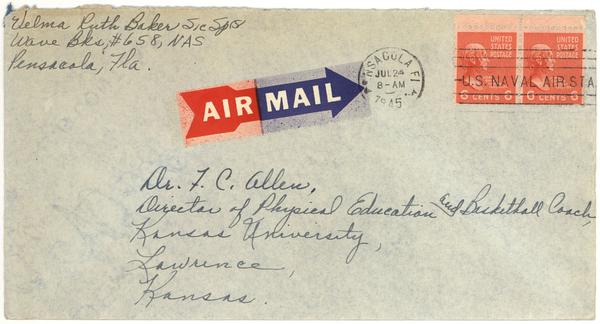 Velma Ruth Baker S1c SpG
Wave Bks, #658, NAS
Pensacola, Fla.
AIR MAIL
PENSACOLA FLA
JUL 24
8-AM
1945
U.S. NAVAL AIR STA
UNITED STATES POSTAGE
6 CENTS 6
UNITED STATES POSTAGE
6 CENTS 6
Dr. F. C. Allen,
Director of Physical Education and Basketball Coach,
Kansas University,
Lawrence,
Kansas.